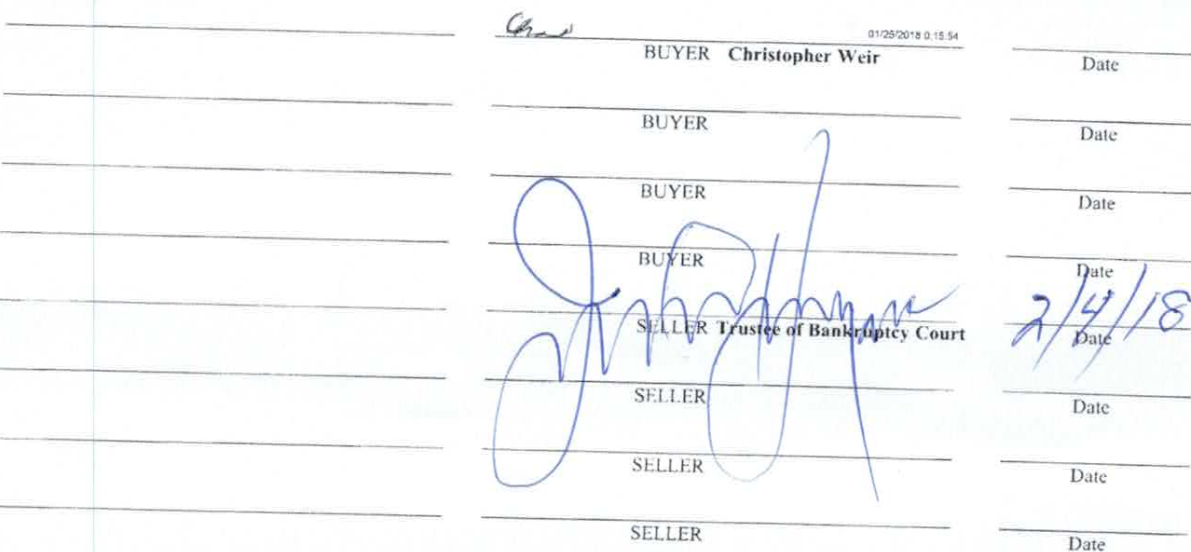 01/25/2018 0:15:54
BUYER Christopher Weir Date
BUYER Date
BUYER Date
BUYER Date
2/4/18
SELLER Trustee of Bankruptcy Court Date
SELLER Date
SELLER Date
SELLER Date